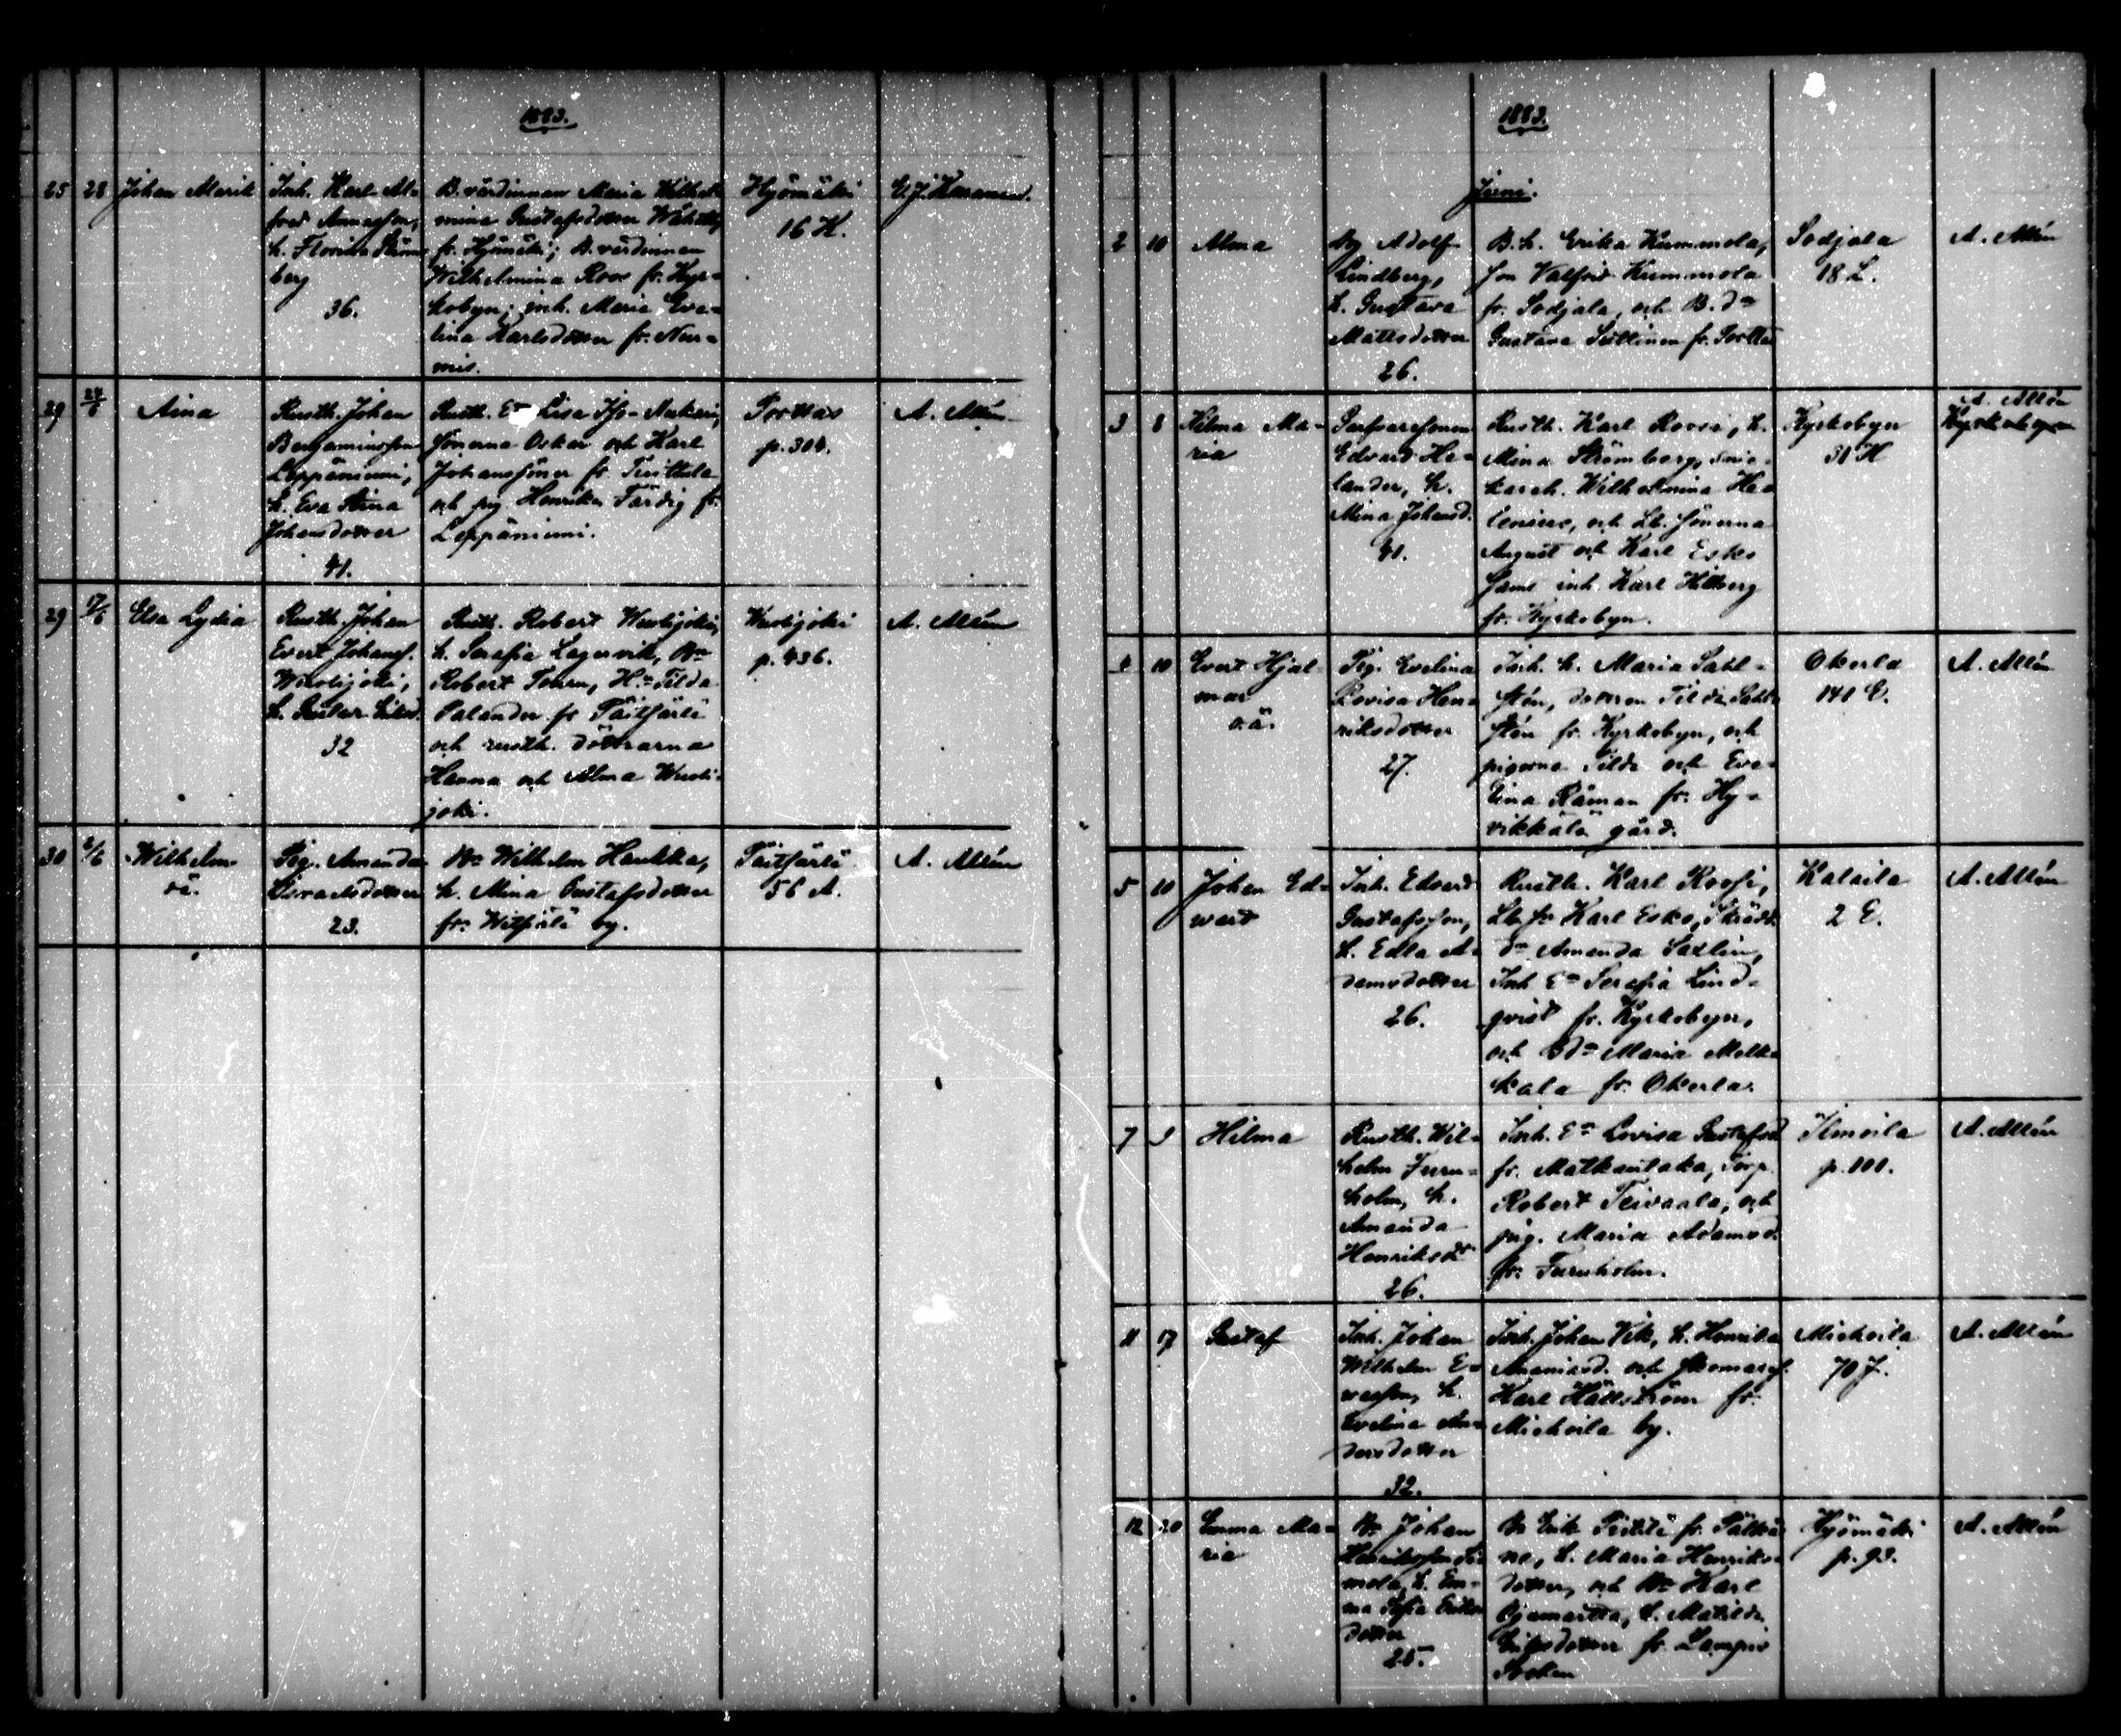 1883.
25 28 Johan Alarik
Inh. Karl Al-
fred Annasson,
h. Florina Ström
berg
36.
B. värdinnan Maria Wilhel
mina Gustafsdotter
fr. Hyömäki; B. värdinnan
Wilhelmina Roos fr. Kyr-
kobyn; inh. Maria Eve-
lina Karlsdotter fr. Nur-
mis.
Hyömäki
16 K.
29 24/6 Aina
Rusth. Johan
Benjaminsson
Leppäniemi,
h. Eva Stina
Johansdotter
41.
Rusth. Ea Lisa
sönerna Oskar och Karl
Johanssöner fr.
och pig. Henrika Färdig fr.
Leppäniemi.
Porttas
p. 304.
A. Allén
29 17/6 Elsa Lydia
Rusth. Johan
Evert Johanss.
Wuolijoki,
h.
32
Rusth. Robert Wuolijoki,
h. Serafia Lagervik, Bn
Robert Tohru, Ha Tilda
Palander fr. Täitjärli
och rusth. döttrarna
Hanna och Alma Wuoli-
joki.
Wuolijoki
p. 436.
A. Allén
30 2/6 Wilhelm
oä.
Pig. Amanda
Israelsdotter
23.
Bn Wilhelm Haukka,
h. Mina Gustafsdotter
fr. by.
Täitjärli
56 A.
A. Allén
1883.
Juni.
2 10 Alma
Adolf
Lindberg,
h. Gustava
Mattsdotter
26.
B.h. Erika Kummola,
son Valfrid Kummola
fr. Sodjala, och B. da
Gustava fr. Porttas
Sodjala
18 L.
A. Allén
3 8 Hilma Ma-
ria
Edvard He-
lander, h.
Mina Johansd.
41.
Rusth. Karl Roosi, h.
Mina Strömberg, snic-
kareh. Wilhelmina He-
lenius, och Lb. sönerna
August och Karl Esko
samt inh. Karl Hillberg
fr. Kyrkobyn.
Kyrkobyn
31 K
A. Allén
Kyrkobyn
4 10 Evert Hjal-
mar
o.ä.
Pig. Evelina
Lovisa Hen-
riksdotter
27.
Inh. h. Maria Sahl-
stén, dottren Tilda Sahl-
stén fr. Kyrkobyn, och
pigorna Tilda och Eve-
lina Råman fr. Hy-
vikkälä gård.
Okerla
141 E.
A. Allén
5 10 Johan Ed-
vard
Inh. Edvard
Gustafsson,
h. Edla A-
damsdotter
26.
Rusth. Karl Roosi,
Lb. sn Karl Esko, Skrädd.
da Amanda Saxlin,
Inh Ea Serafia Lind-
qvist fr. Kyrkobyn,
och Bda Maria Melk-
kala fr. Okerla.
Kalaila
2 E.
A. Allén
7 9 Hilma
Rusth. Wil-
helm Furu-
holm, h.
Amanda
Henriksdr
26.
Inh. Ea Lovisa Gustafsd
fr. Matkantaka, Torp.
Robert Teivaala, och
pig. Maria Adamsd.
fr. Furuholm.
Ilmoila
p. 101.
A. Allén
11 17 Gustaf
Inh. Johan
Wilhelm E-
vasson, h.
Evelina An-
dersdotter
32.
Inh. Johan Vik, h. Henrika
Ananiasd. och skomares.
Karl Hällström fr.
Miehoila by.
Miehoila
70 J.
A. Allén
12 20 Emma Ma-
ria
Bn Johan
Henriksson
h. Em-
ma Sofia Eriks
dotter
25.
Bn Erik fr. Pälkä
ne, h. Maria Henriks-
dotter, och Bn Karl
h. Matilda
Eriksdotter fr. Lampis
socken
Hyömäki
p. 93.
A. Allén